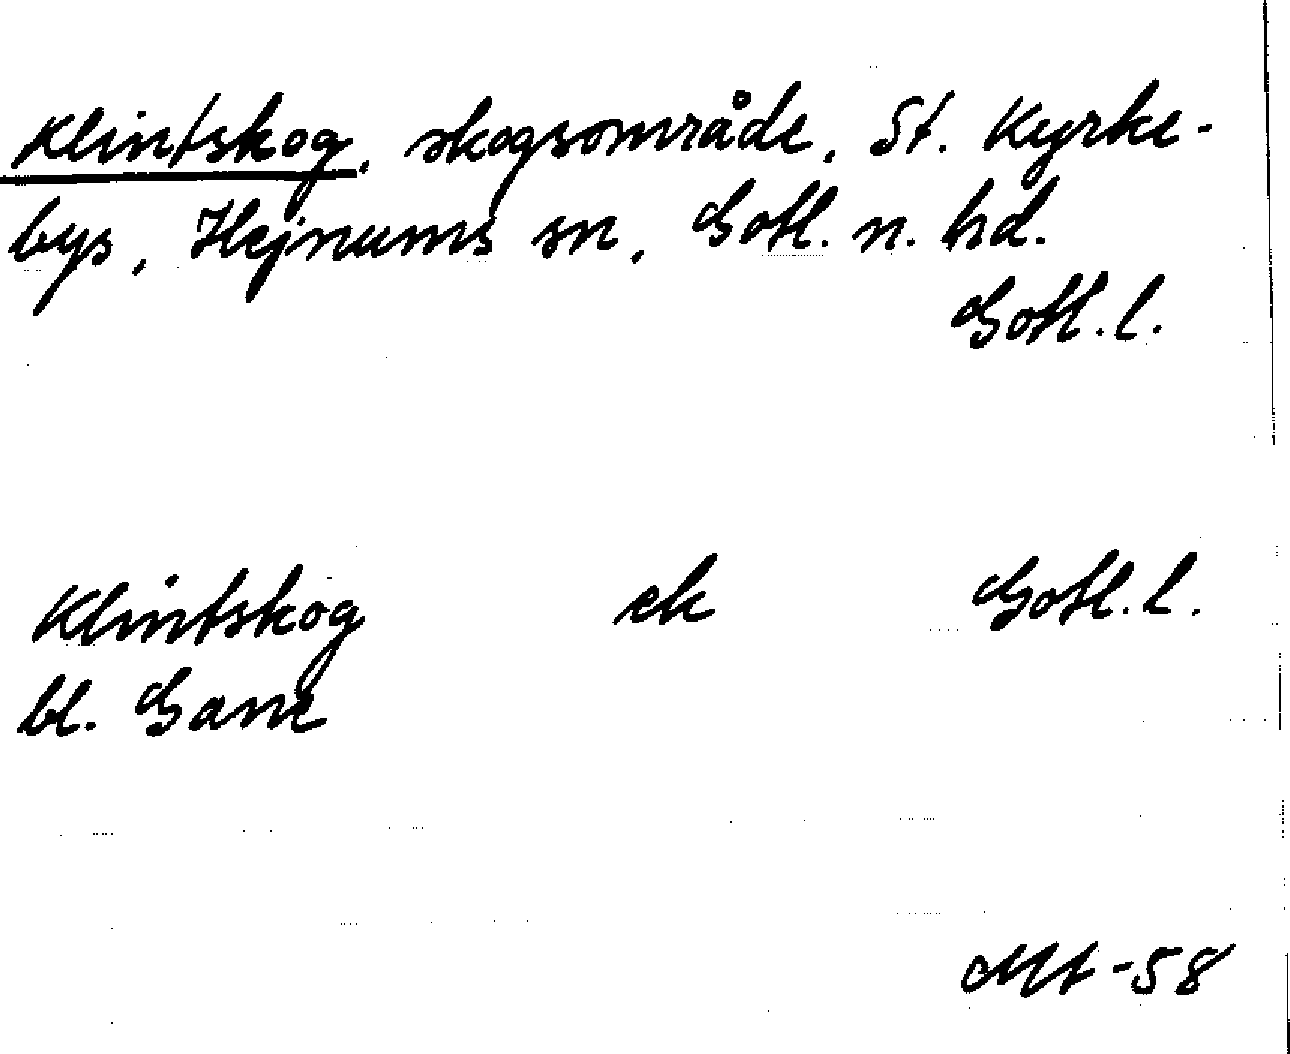 Klintskog, skogsområde, St. Kyrke-
bys, Hejnums sn, Gotl. n. hd.
Gotl. l.
Klintskog ek Gotl. l.
bl. Gane
Mt -58